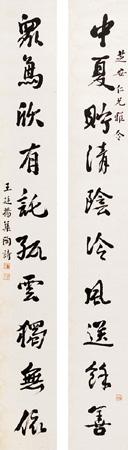 芝安仁兄雅令
中夏貯清陰泠風送餘善
眾鳥欣有託孤雲獨無依
王廷揚集陶詩